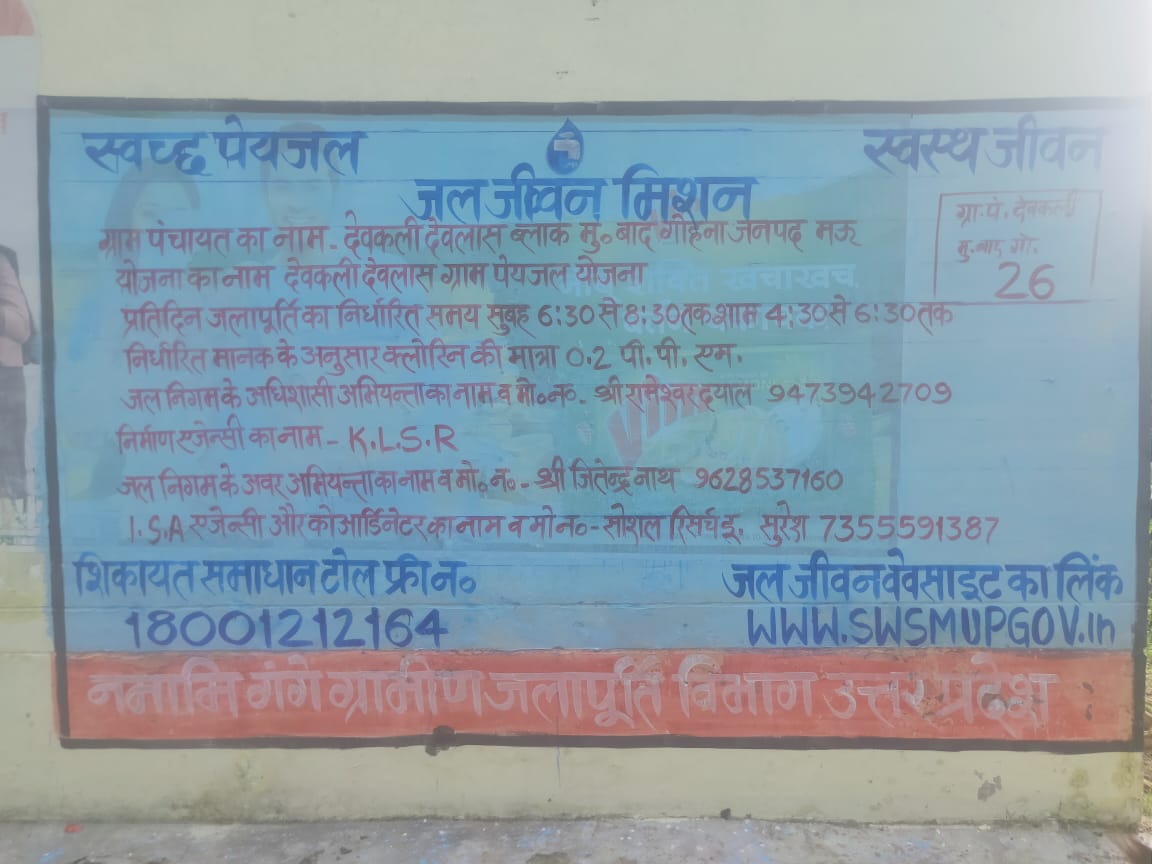 स्वच्छ पेयजल
स्वस्थ जीवन
जल जीवन मिशन
ग्रा.पं. देवकली
मु. बाद गो.
26
ग्राम पंचायत का नाम - देवकली देवलास ब्लाक मु० बाद गोहना जनपद मऊ
योजना का नाम देवकली देवलास ग्राम पेयजल योजना
प्रतिदिन जलापूर्ति का निर्धारित समय सुबह 6:30 से 8:30 तक शाम 4:30 से 6:30 तक
निर्धारित मानक के अनुसार क्लोरिन की मात्रा 0.2 पी. पी. एम.
जल निगम के अधिशासी अभियन्ता का नाम व मो० न० - श्री रामेश्वर दयाल 9473942709
निर्माण एजेन्सी का नाम - K.L.S.R
जल निगम के अवर अभियन्ता का नाम व मो० न० - श्री जितेन्द्र नाथ 9628537160
I.S.A एजेन्सी और कोआर्डिनेटर का नाम व मो न० - सोशल रिसर्च इ. सुरेश 7355591387
शिकायत समाधान टोल फ्री न०
18001212164
जल जीवन वेवसाइट का लिंक
WWW.SWSMUPGOV.in
नमामि गंगे ग्रामीण जलापूर्ति विभाग उत्तर प्रदेश